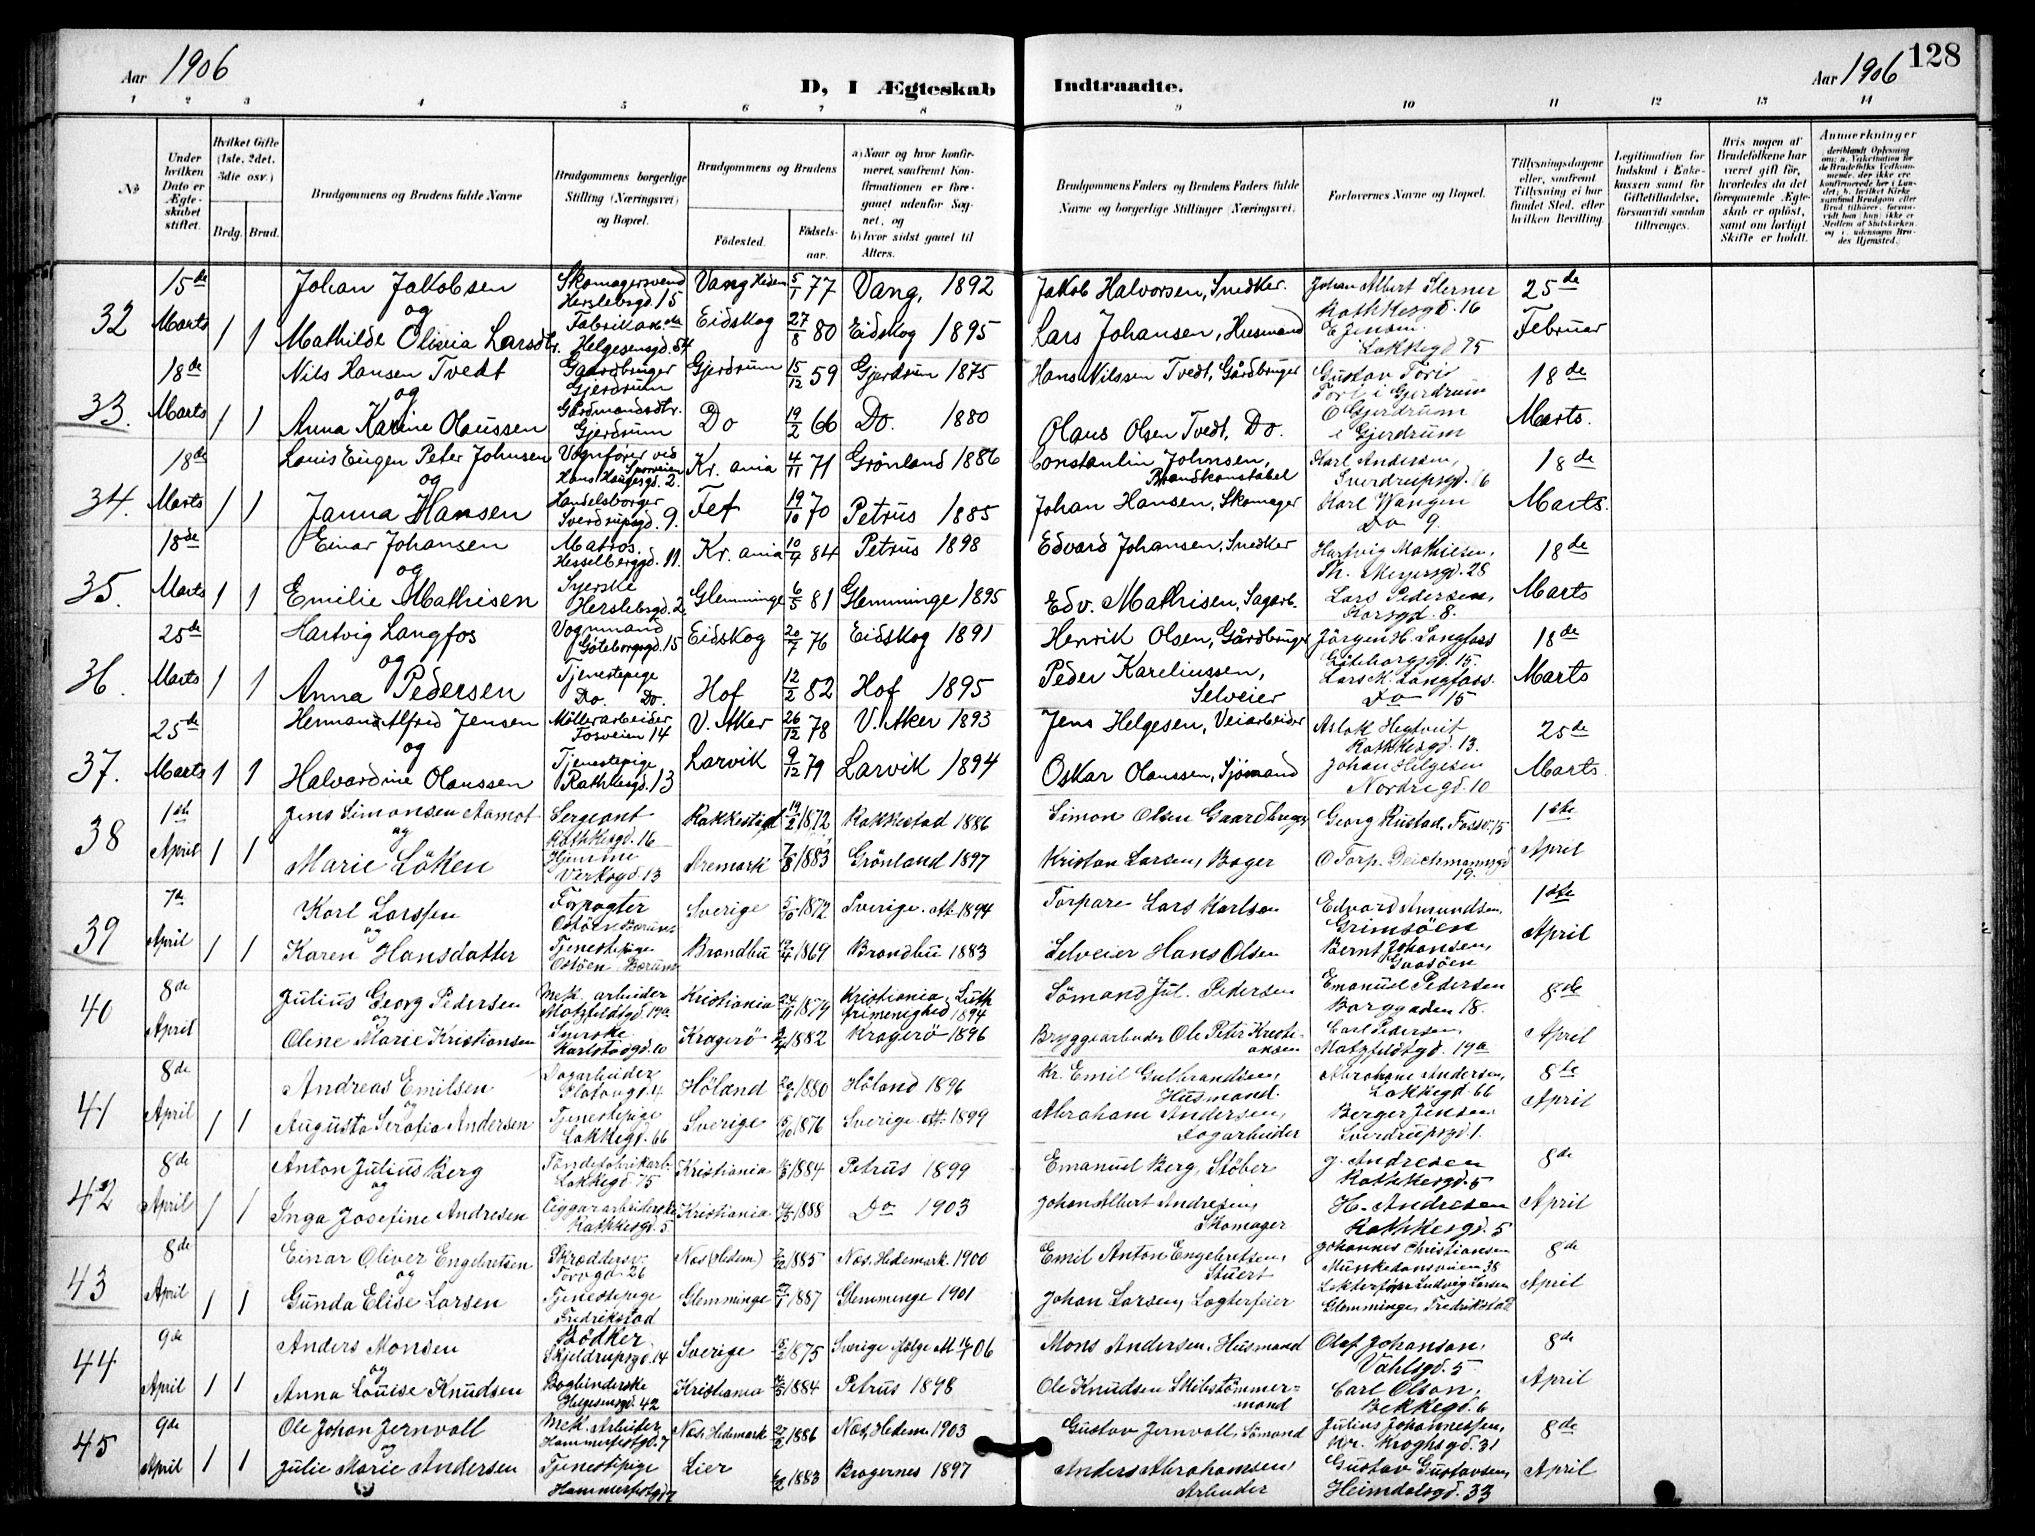 Aar 1906
D, I Ægteskab Indtraadte.
Aar 1906 128
1 2 3 4 5 6 7 8 9 10 11 12 13 14
No
Under hvilken Dato er Ægteskabet stiftet.
Hvilket Gifte (1ste, 2det, 3die osv.)
Brdg. Brud.
Brudgommens og Brudens fulde Navne
Brudgommens borgerlige Stilling (Næringsvei) og Bopæl.
Brudgommens og Brudens
Födested. Födselsaar.
a) Naar og hvor konfirmeret, saafremt Konfirmationen er foregaaet udenfor Sognet, og
b) hvor sidst gaaet til Alters.
Brudgommens Faders og Brudens Faders fulde Navne og borgerlige Stillinger (Næringsvei)
Forlovernes Navne og Bopæl.
Tillysningsdagene eller, saafremt Tillysning ei har fundet Sted, efter hvilken Bevilling.
Legitimation for Indskud i Enkekassen samt for Giftetilladelse, forsaavidt saadan tiltrænges.
Hvis nogen af Brudefolkene har været gift för, hvorledes da det foregaaende Ægteskab er oplöst, samt om lovligt Skifte er holdt.
Anmerkninger
32 15de Marts 1 1
Johan Jakobsen Skomagersvend Herslebsgd. 15 Vang Hedem 5/1 77 Vang, 1892 Jakob Halvorsen, Snedker. Johan Albert Sterner Rathkesgd. 16 25de
og
Mathilde Olivia Larsdtr. Helgesensgd. 54 Eidskog 27/8 80 Eidskog 1895 Lars Johansen, Husmand E Jensen Lakkegd 75 Februar
33. 18de Marts 1 1
Nils Hansen Tvedt Gaardbruger Gjerdrum Gjerdrum 15/12 59 Gjerdrum 1875 Hans Nilssen Tvedt, Gårdbruger Gustav i Gjerdrum 18de
og
Anna Karine Olaussen Gårdmandsdtr. Gjerdrum Do 19/2 66 Do. 1880 Olaus Olsen Tvedt, Do. i Gjerdrum Marts.
34. 18de Marts 1 1
Louis Eugen Peter Johnsen Vognfører ved Sporveien Hans Haugesgd. 2. Kr. ania 4/11 71 Grönland 1886 Constantin Johnsen, Brandkonstabel Karl Andersen, Sverdrupsgd. 16 18de
og
Janna Hansen Handelsborger Sverdrupsgd. 9. Fet 19/10 70 Petrus 1885 Johan Hansen, Skomager Karl Wangen Do 9. Marts.
35. 18de Marts 1 1
Einar Johansen Matros. Hesselberggd. 11. Kr. ania 10/9 84 Petrus 1898 Edvard Johansen, Snedker Hartvig Mathisen, Th. Meyersgd. 28 18de
og
Emilie Mathisen Syerske Herslebsgd. 2 Glemminge 6/5 81 Glemminge 1895 Edv. Mathisen, Sagarb. Lars Pedersen, Korsgd. 8. Marts
36. 25de Marts 1 1
Hartvig Langfos Vognmand Göteborggd. 15 Eidskog 20/7 76 Eidskog 1891 Henrik Olsen, Gårdbruger Jörgen H. Langfoss Göteborggd. 15. 18de
og
Anna Pedersen Tjenestepige Do. Do. Hof 12/2 82 Hof 1895 Peder Kareliussen, Selveier Lars M. Langfoss. Do 15 Marts
37. 25de Marts 1 1
Herman Alfred Jensen Möllerarbeider Fosveien 14 V. Aker 26/12 78 V. Aker 1893 Jens Helgesen, Veiarbeider Aslak Rathkesgd. 13. 25de
og
Halvardine Olaussen Tjenestepige Rathkesgd. 13 Larvik 9/12 79 Larvik 1894 Oskar Olaussen, Sjömand Johan Helgesen Nordregd. 10 Marts.
38 1ste April 1 1
Jens Simonsen Aamot Sergeant Rathkesgd. 16 Rakkestad 19/2 1872 Rakkestad 1886 Simon Olsen Gaardbruger Georg Rustad, Fossv. 15 1ste
og
Marie Löken Hjemme Verksgd. 13 Aremark 7/8 1883 Grönland 1897 Kristian Larsen, Bager O Torp. Deichmannsgd 19. April
39 7de April 1 1
Karl Larssen Forpagter Ostöen Bærum Sverige 5/10 1872 Sverige. Att. 1894 Torpare Lars Karlson Edvard Amundsen, Grimsöen 1ste
og
Karen Hansdatter Tjenestepige Ostöen Bærum Brandbu 1869 Brandbu 1883 Selveier Hans Olsen Bernt Johansen, Gaasöen April
40 8de April
Julius Georg Pedersen Mek. arbeider Motzfeldtsgd. 19a Kristiania 24/11 1879 Kristiania, Luth frimenighed 1894 Sömand Jul. Pedersen Emanuel Pedersen Borggaden 18. 8de
og
Oline Marie Kristiansen Syerske Karlstadgd. 10 Kragerö 1882 Kragerö 1896 Bryggearbeider Ole Peter Kristiansen Carl Pedersen, Motzfeldtsgd. 19a April
41 8de April 1 1
Andreas Emilsen Dagarbeider Platougd. 4 Höland 1880 Höland 1896 Kr. Emil Gulbrandsen, Husmand. Abraham Andersen, Lakkegd. 66 8de
og
Augusta Serafia Andersen Tjenestepige Lakkegd. 66 Sverige 1876 Sverige Att. 1899 Abraham Andersen, Dagarbeider Berger Jensen Sverdrupsgd. 1. April
42 8de April 1 1
Anton Julius Berg Töndefabrikarb. Lakkegd. 75 Kristiania 1884 Petrus 1899 Emanuel Berg, Stöber J. Andresen Rathkesgd. 5 8de
og
Inga Josefine Andresen Ciggararbeiderske Rathkesgd. 5 Kristiania 1888 Do 1903 Johan Albert Andresen, Skomager H. Andresen Rathkesgd. 5 April
43 8de April 1 1
Einar Oliver Engebretsen Skræddersv. Torvgd. 26 Næs (Hedem) 1885 Næs, Hedemark 1900 Emil Anton Engebretsen, Stuert Johannes Christiansen Munkedamsveien 38 8de
og
Gunda Elise Larsen Tjenestepige Fredrikstad Glemminge 1887 Glemminge 1901 Johan Larsen, Ludvig Larsen Glemminge, Fredrikstad April
44 9de April 1 1
Anders Monsen Bödker Skjeldrupsgd. 14 Sverige 1875 Sverige ifølge Att. 06 Mons Andersen, Husmand Olaf Johanson, Vahlsgd. 5 8de
og
Anna Louise Knudsen Bogbinderske Helgesensgd. 42 Kristiania 1884 Petrus 1898 Ole Knudsen Skibstömmermand Carl Olson, Bekkegd. 6 April
45 9de April 1 1
Ole Johan Jernvall Mek. Arbeider Hammerfestgd. 7 Næs, Hedemark 27/2 1886 Næs, Hedem. 1903 Gustav Jernvall, Sömand Julius Johannessen, Kr. Kroghsgd. 31 8de
og
Julie Marie Andersen Tjenestepige Hammerfestgd. 7 Lier 1883 Bragernes 1897 Anders Abrahamsen, Arbeider Gustav Gustavsen, Heimdalsgd. 33 April